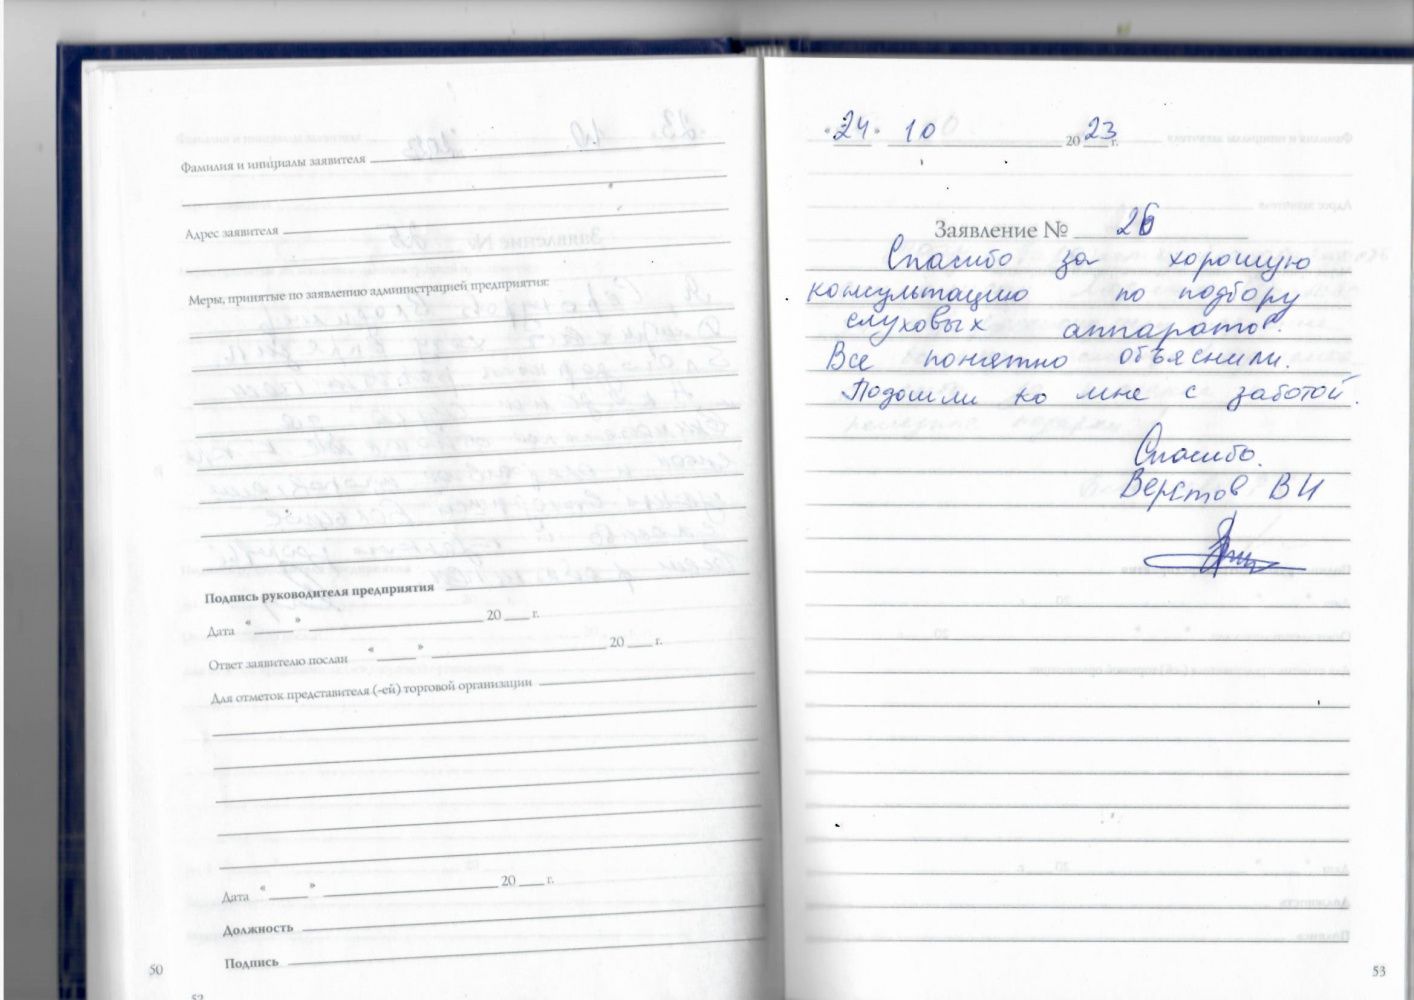 Фамилия и инициалы заявителя
Адрес заявителя
Меры, принятые по заявлению администрацией предприятия:
Подпись руководителя предприятия
Дата « » 20 г.
Ответ заявителю послан « » 20 г.
Для отметок представителя (-ей) торговой организации
Дата « » 20 г.
Должность
Подпись
50
52
«24» 10 2023 г.
Заявление № 26
Спасибо за хорошую
консультацию по подбору
слуховых аппаратов.
Все понятно объяснили.
Подошли ко мне с заботой.
Спасибо.
Верстов ВИ
53